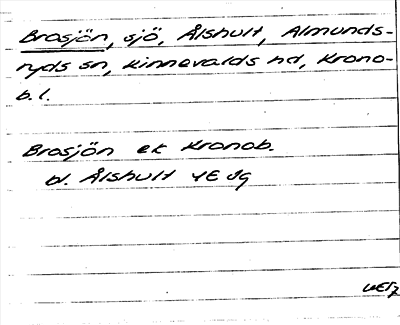 Brosjön, sjö, Ålshult, Almunds-
ryds sn, Kinnevalds hd, Krono-
b. l.
Brosjön ek Kronob.
bl. Ålshult 4E Jg